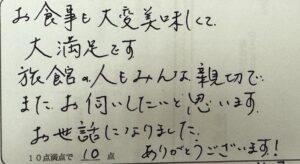 お食事も大変美味しくて
大満足です
旅館の人もみんな親切で
また、お伺いしたいと思います。
お世話になりました。
ありがとうございます!
10点満点で 10 点